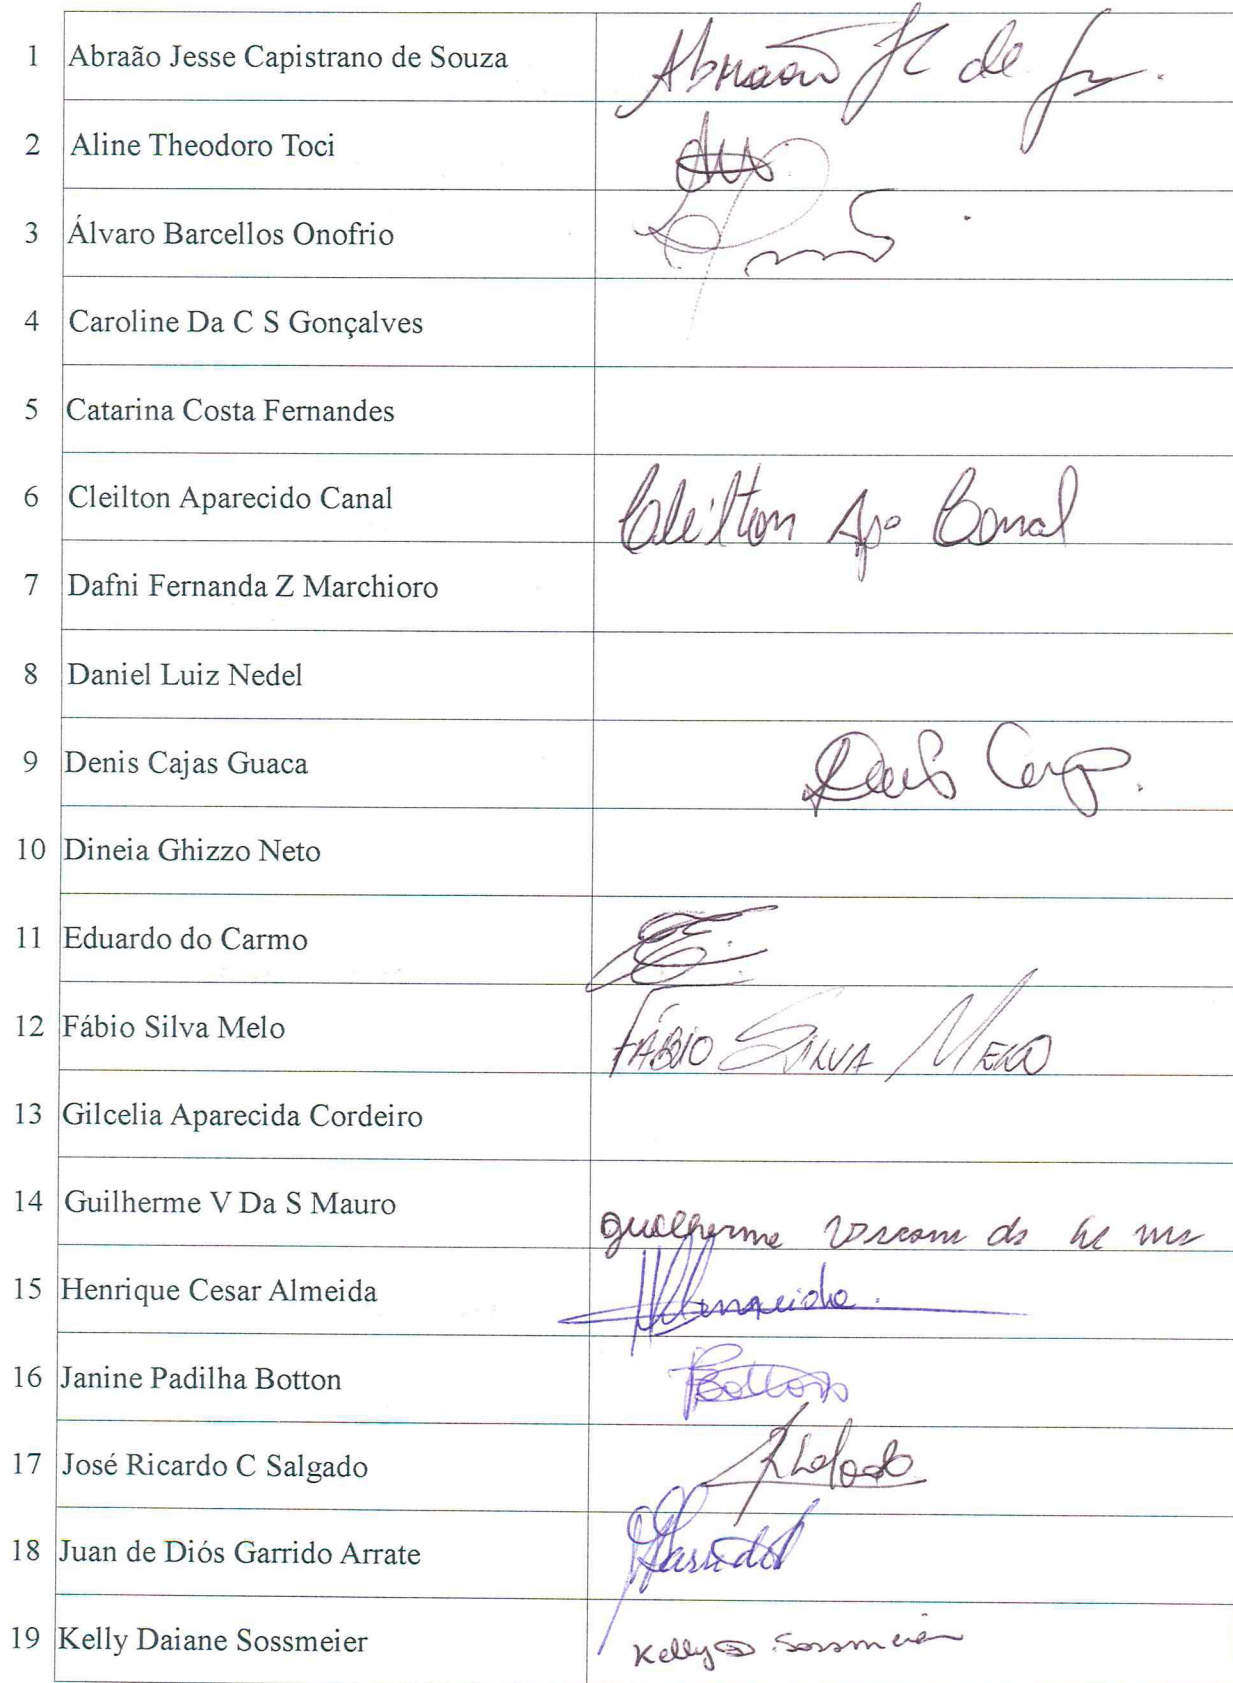 1 Abraão Jesse Capistrano de Souza Abraão JC de
2 Aline Theodoro Toci
3 Álvaro Barcellos Onofrio
4 Caroline Da C S Gonçalves
5 Catarina Costa Fernandes
6 Cleilton Aparecido Canal Cleilton Apº Canal
7 Dafni Fernanda Z Marchioro
8 Daniel Luiz Nedel
9 Denis Cajas Guaca Denis
10 Dineia Ghizzo Neto
11 Eduardo do Carmo
12 Fábio Silva Melo FÁBIO SILVA MELO
13 Gilcelia Aparecida Cordeiro
14 Guilherme V Da S Mauro Guilherme
15 Henrique Cesar Almeida HAlmeida.
16 Janine Padilha Botton JBotton
17 José Ricardo C Salgado
18 Juan de Diós Garrido Arrate Garrido
19 Kelly Daiane Sossmeier Kelly D Sossmeier